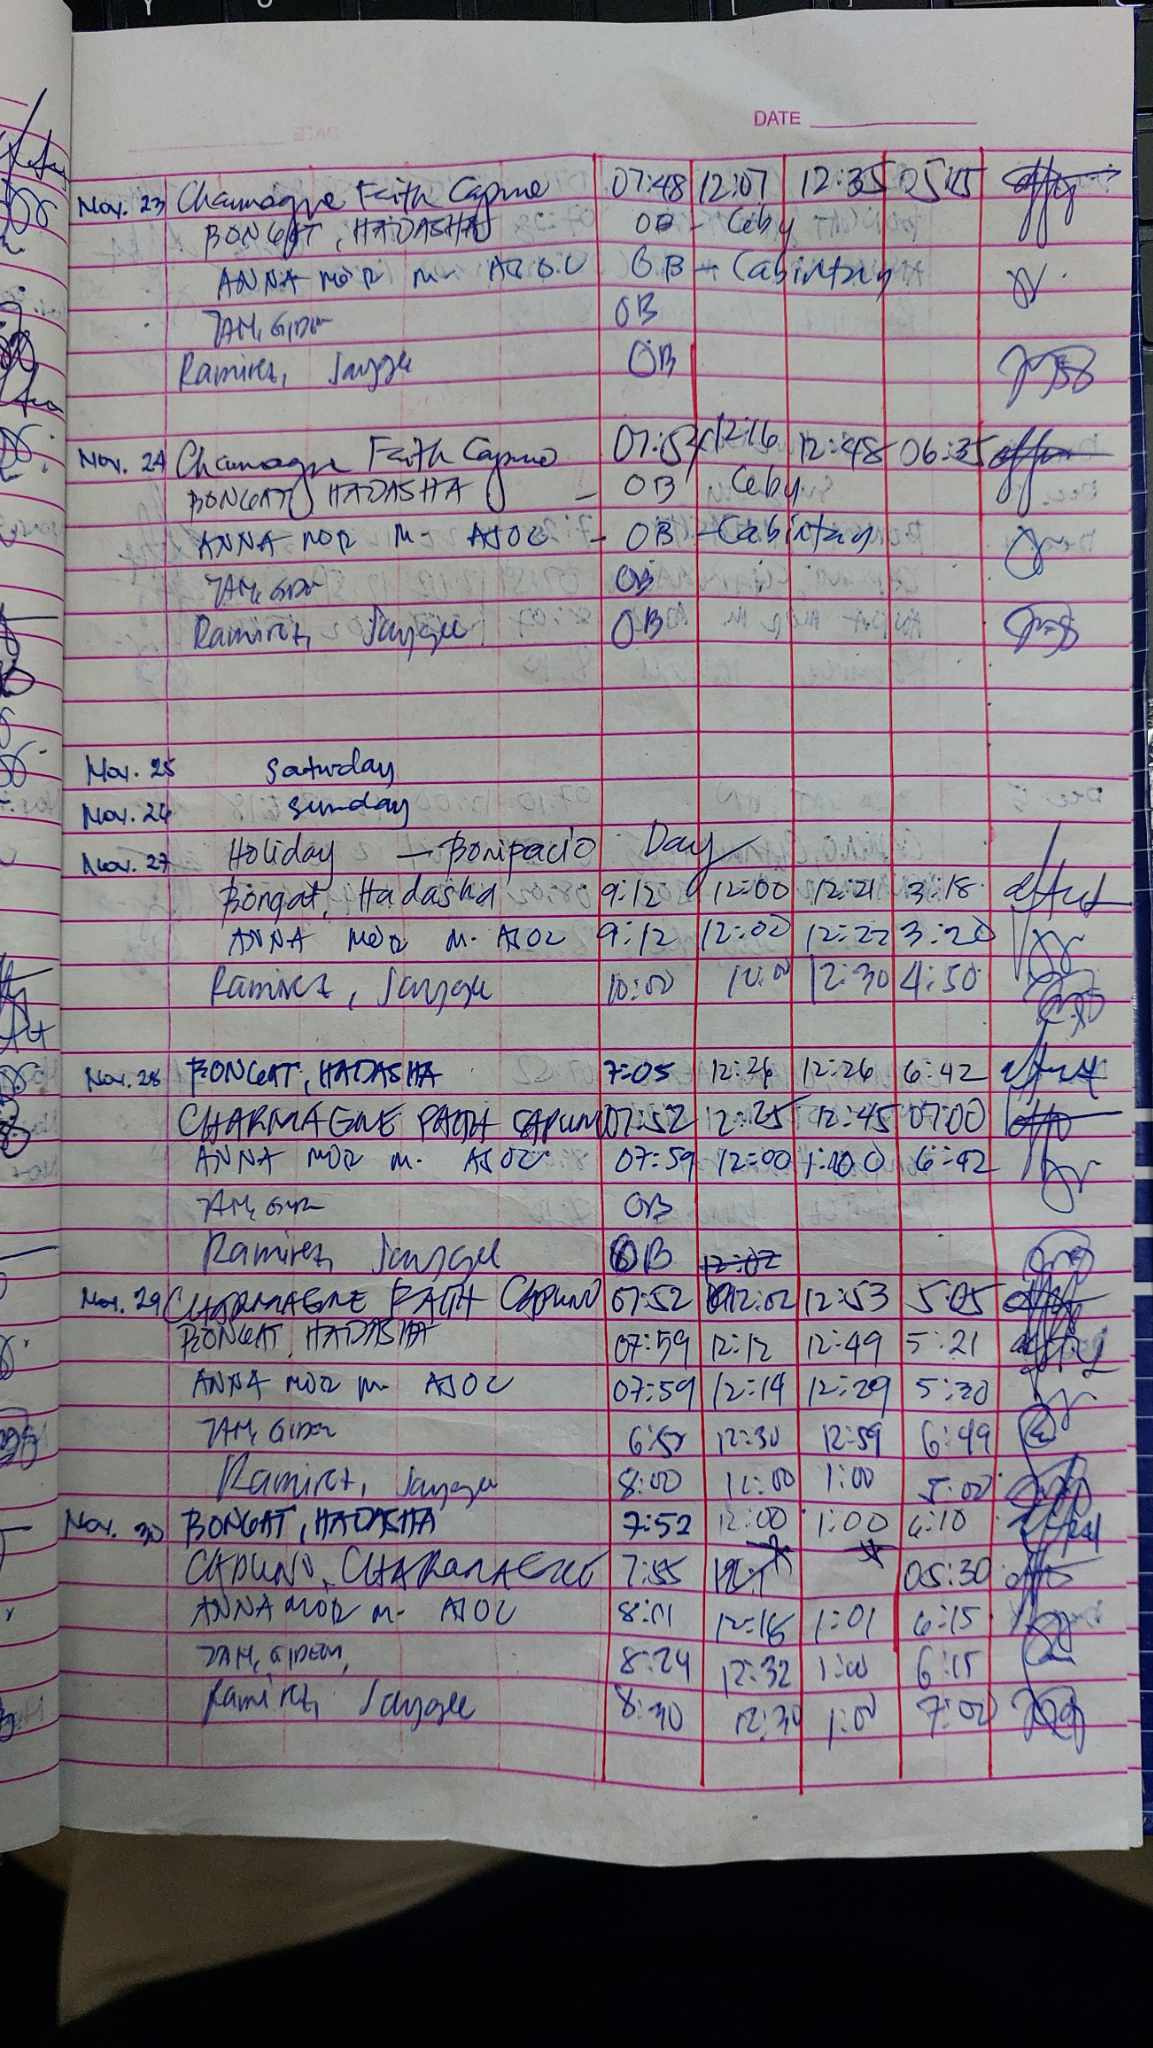 DATE
Nov. 23 Charmagne Faith Capuno 07:48 12:07 12:35 05:15
BONGAT, HADASHA OB - Cebu
ANNA MOR M. AJOC OB - Cabintan
TAN, GIDEON OB
Ramirez, Jaygee OB
Nov. 24 Charmagne Faith Capuno 07:54 12:16 12:48 06:35
BONGAT, HADASHA - OB Cebu
ANNA MOR M. AJOC - OB - Cabintan
OB
Ramirez, Jaygee OB
Nov. 25 Saturday
Nov. 26 Sunday
Nov. 27 Holiday - Bonifacio Day
Bongat, Hadasha 9:12 12:00 12:21 3:18
ANNA MOR M. AJOC 9:12 12:00 12:22 3:20
Ramirez, Jaygee 10:00 12:30 4:50
Nov. 28 BONGAT, HADASHA 7:05 12:26 12:26 6:42
CHARMAGNE FAITH CAPUNO 07:52 12:25 12:45 07:00
ANNA MOR M. AJOC 07:59 12:00 6:42
OB
Ramirez, Jaygee OB 12:02
Nov. 29 CHARMAGNE FAITH CAPUNO 07:52 12:02 12:53 5:05
BONGAT, HADASHA 07:59 12:12 12:49 5:21
ANNA MOR M. AJOC 07:59 12:14 12:29 5:20
TAN, GIDEON 12:30 12:59 6:49
Ramirez, Jaygee 8:00 12:00 1:00 5:00
Nov. 30 BONGAT, HADASHA 7:52 12:00 1:00 6:10
CAPUNO, 7:55 05:30
ANNA MOR M. AJOC 8:01 12:16 1:01 6:15
TAN, GIDEON 8:24 12:32 1:00 6:15
Ramirez, Jaygee 8:30 12:30 1:00 7:00